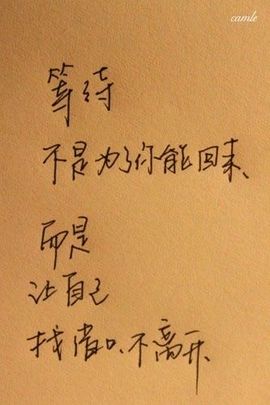 camile
等待
不是为了你能回来、
而是
让自己
找借口、不离开